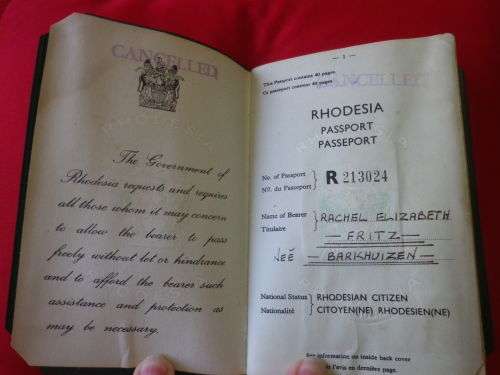 CANCELLED
The Government of
Rhodesia requests and requires
all those whom it may concern
to allow the bearer to pass
freely without let or hindrance
and to afford the bearer such
assistance and protection as
may be necessary.
— 1 —
This Passport contains 40 pages.
Ce passeport contient 40 pages.
CANCELLED
RHODESIA
PASSPORT
PASSEPORT
No. of Passport
No. du Passeport
R 213024
Name of Bearer
Titulaire
RACHEL ELIZABETH
— FRITZ —
NEÉ — BARKHUIZEN —
National Status
Nationalité
RHODESIAN CITIZEN
CITOYEN(NE) RHODESIEN(NE)
See information on inside back cover
l'avis en dernière page.